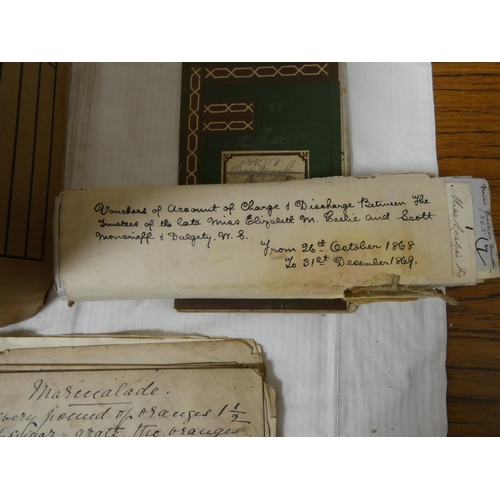 Vouchers of Account of Charge & Discharge Between The
Trustees of the late Miss Elizabeth M. Leslie and Scott
Moncrieff & Dalgety, W. S.
From 26th October 1868
To 31st December 1869.
Miss Leslie
Marmalade.
every pound of oranges 1 1/2
sugar grate the oranges